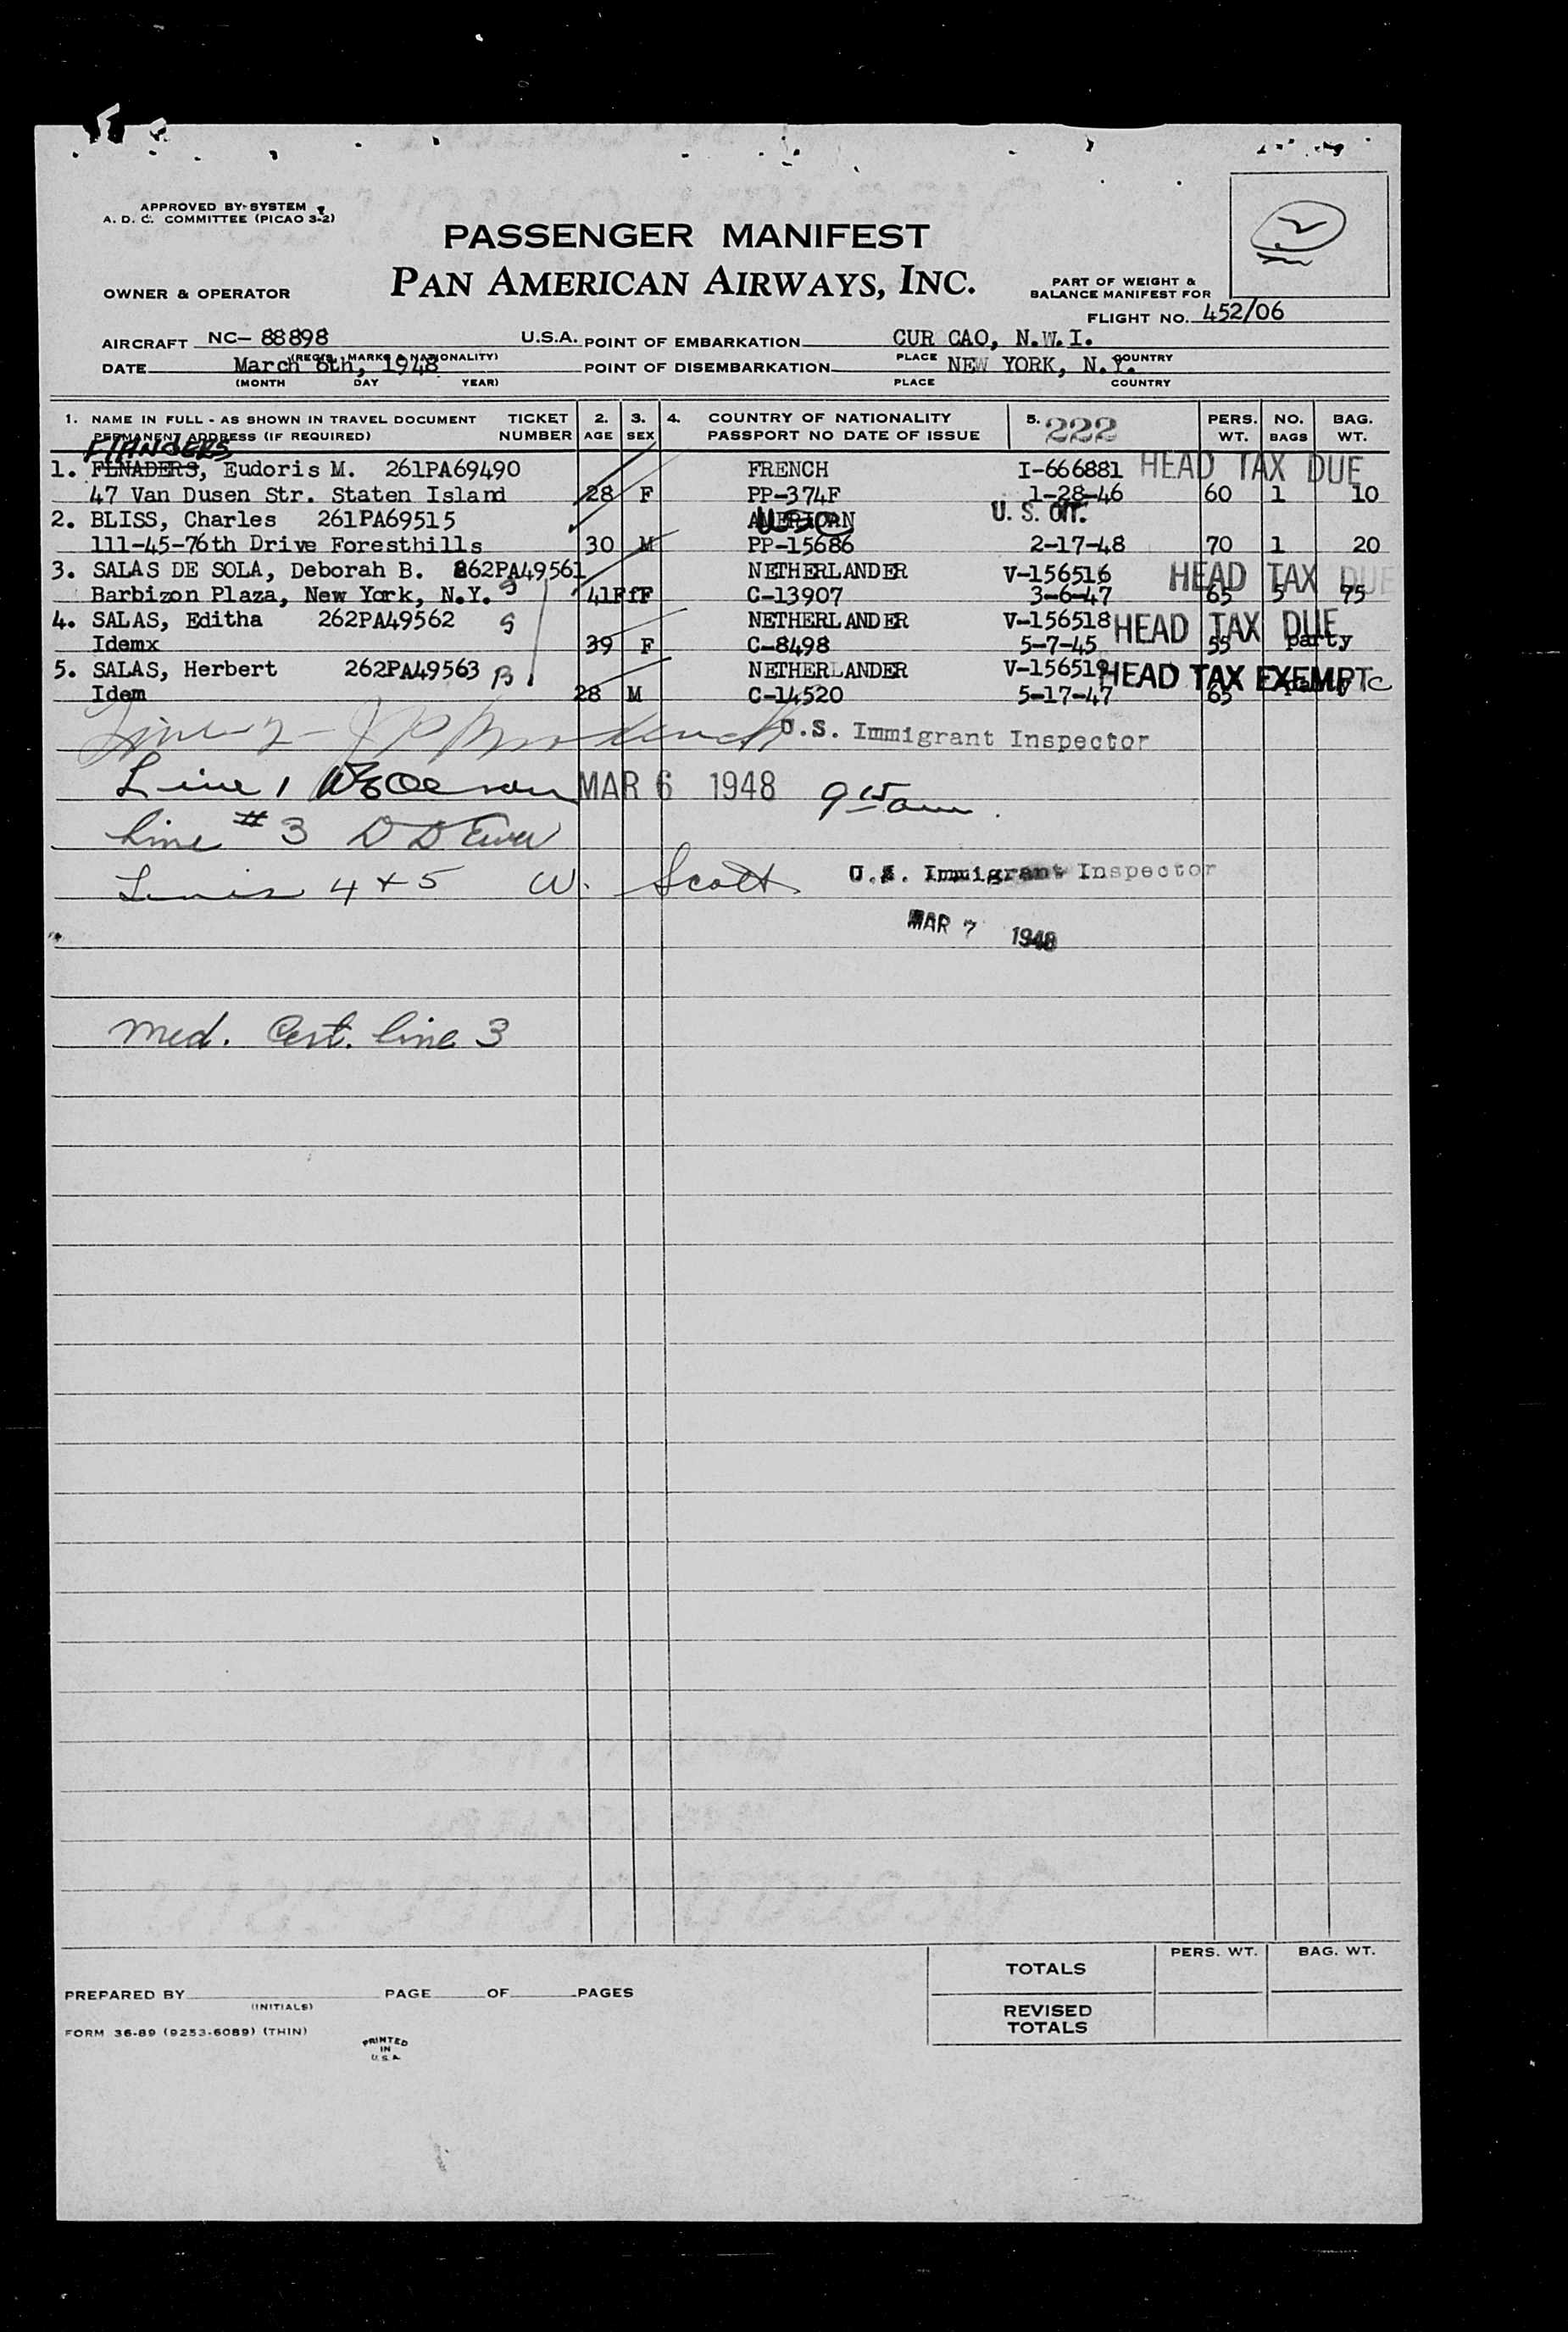 APPROVED BY SYSTEM
A. D. C. COMMITTEE (PICAO 3-2)
PASSENGER MANIFEST
PAN AMERICAN AIRWAYS, INC.
OWNER & OPERATOR
PART OF WEIGHT &
BALANCE MANIFEST FOR
FLIGHT NO. 452/06
AIRCRAFT NC- 88898 U.S.A. POINT OF EMBARKATION CUR CAO, N.W.I.
(REGIS. MARKS & NATIONALITY) PLACE COUNTRY
DATE March 6th, 1948 POINT OF DISEMBARKATION NEW YORK, N.Y.
(MONTH DAY YEAR) PLACE COUNTRY
1. NAME IN FULL - AS SHOWN IN TRAVEL DOCUMENT TICKET 2. 3. 4. COUNTRY OF NATIONALITY 5. 222 PERS. NO. BAG.
PERMANENT ADDRESS (IF REQUIRED) NUMBER AGE SEX PASSPORT NO DATE OF ISSUE WT. BAGS WT.
FLANDERS
1. FLNADERS, Eudoris M. 261PA69490 FRENCH I-666881 HEAD TAX DUE
47 Van Dusen Str. Staten Island 28 F PP-374F 1-28-46 60 1 10
2. BLISS, Charles 261PA69515 AMERICAN USC U. S. CIT.
111-45-76th Drive Foresthills 30 M PP-15686 2-17-48 70 1 20
3. SALAS DE SOLA, Deborah B. 262PA49561 NETHERLANDER V-156516 HEAD TAX DUE
Barbizon Plaza, New York, N.Y. S 41 F C-13907 3-6-47 65 5 75
4. SALAS, Editha 262PA49562 S NETHERLANDER V-156518 HEAD TAX DUE
Idemx 39 F C-8498 5-7-45 55 party
5. SALAS, Herbert 262PA49563 B NETHERLANDER V-156519 HEAD TAX EXEMPT C
Idem 28 M C-14520 5-17-47 65 party
Line 2 - U.S. Immigrant Inspector
Line 1 MAR 6 1948 9 15 am.
Line # 3 D D
Lines 4 + 5 W. Scott U.S. Immigrant Inspector
MAR 7 1948
Med. Cert. line 3
TOTALS PERS. WT. BAG. WT.
PREPARED BY PAGE OF PAGES
(INITIALS)
REVISED
TOTALS
FORM 36-89 (9253-6089) (THIN)
PRINTED
IN
U.S.A.